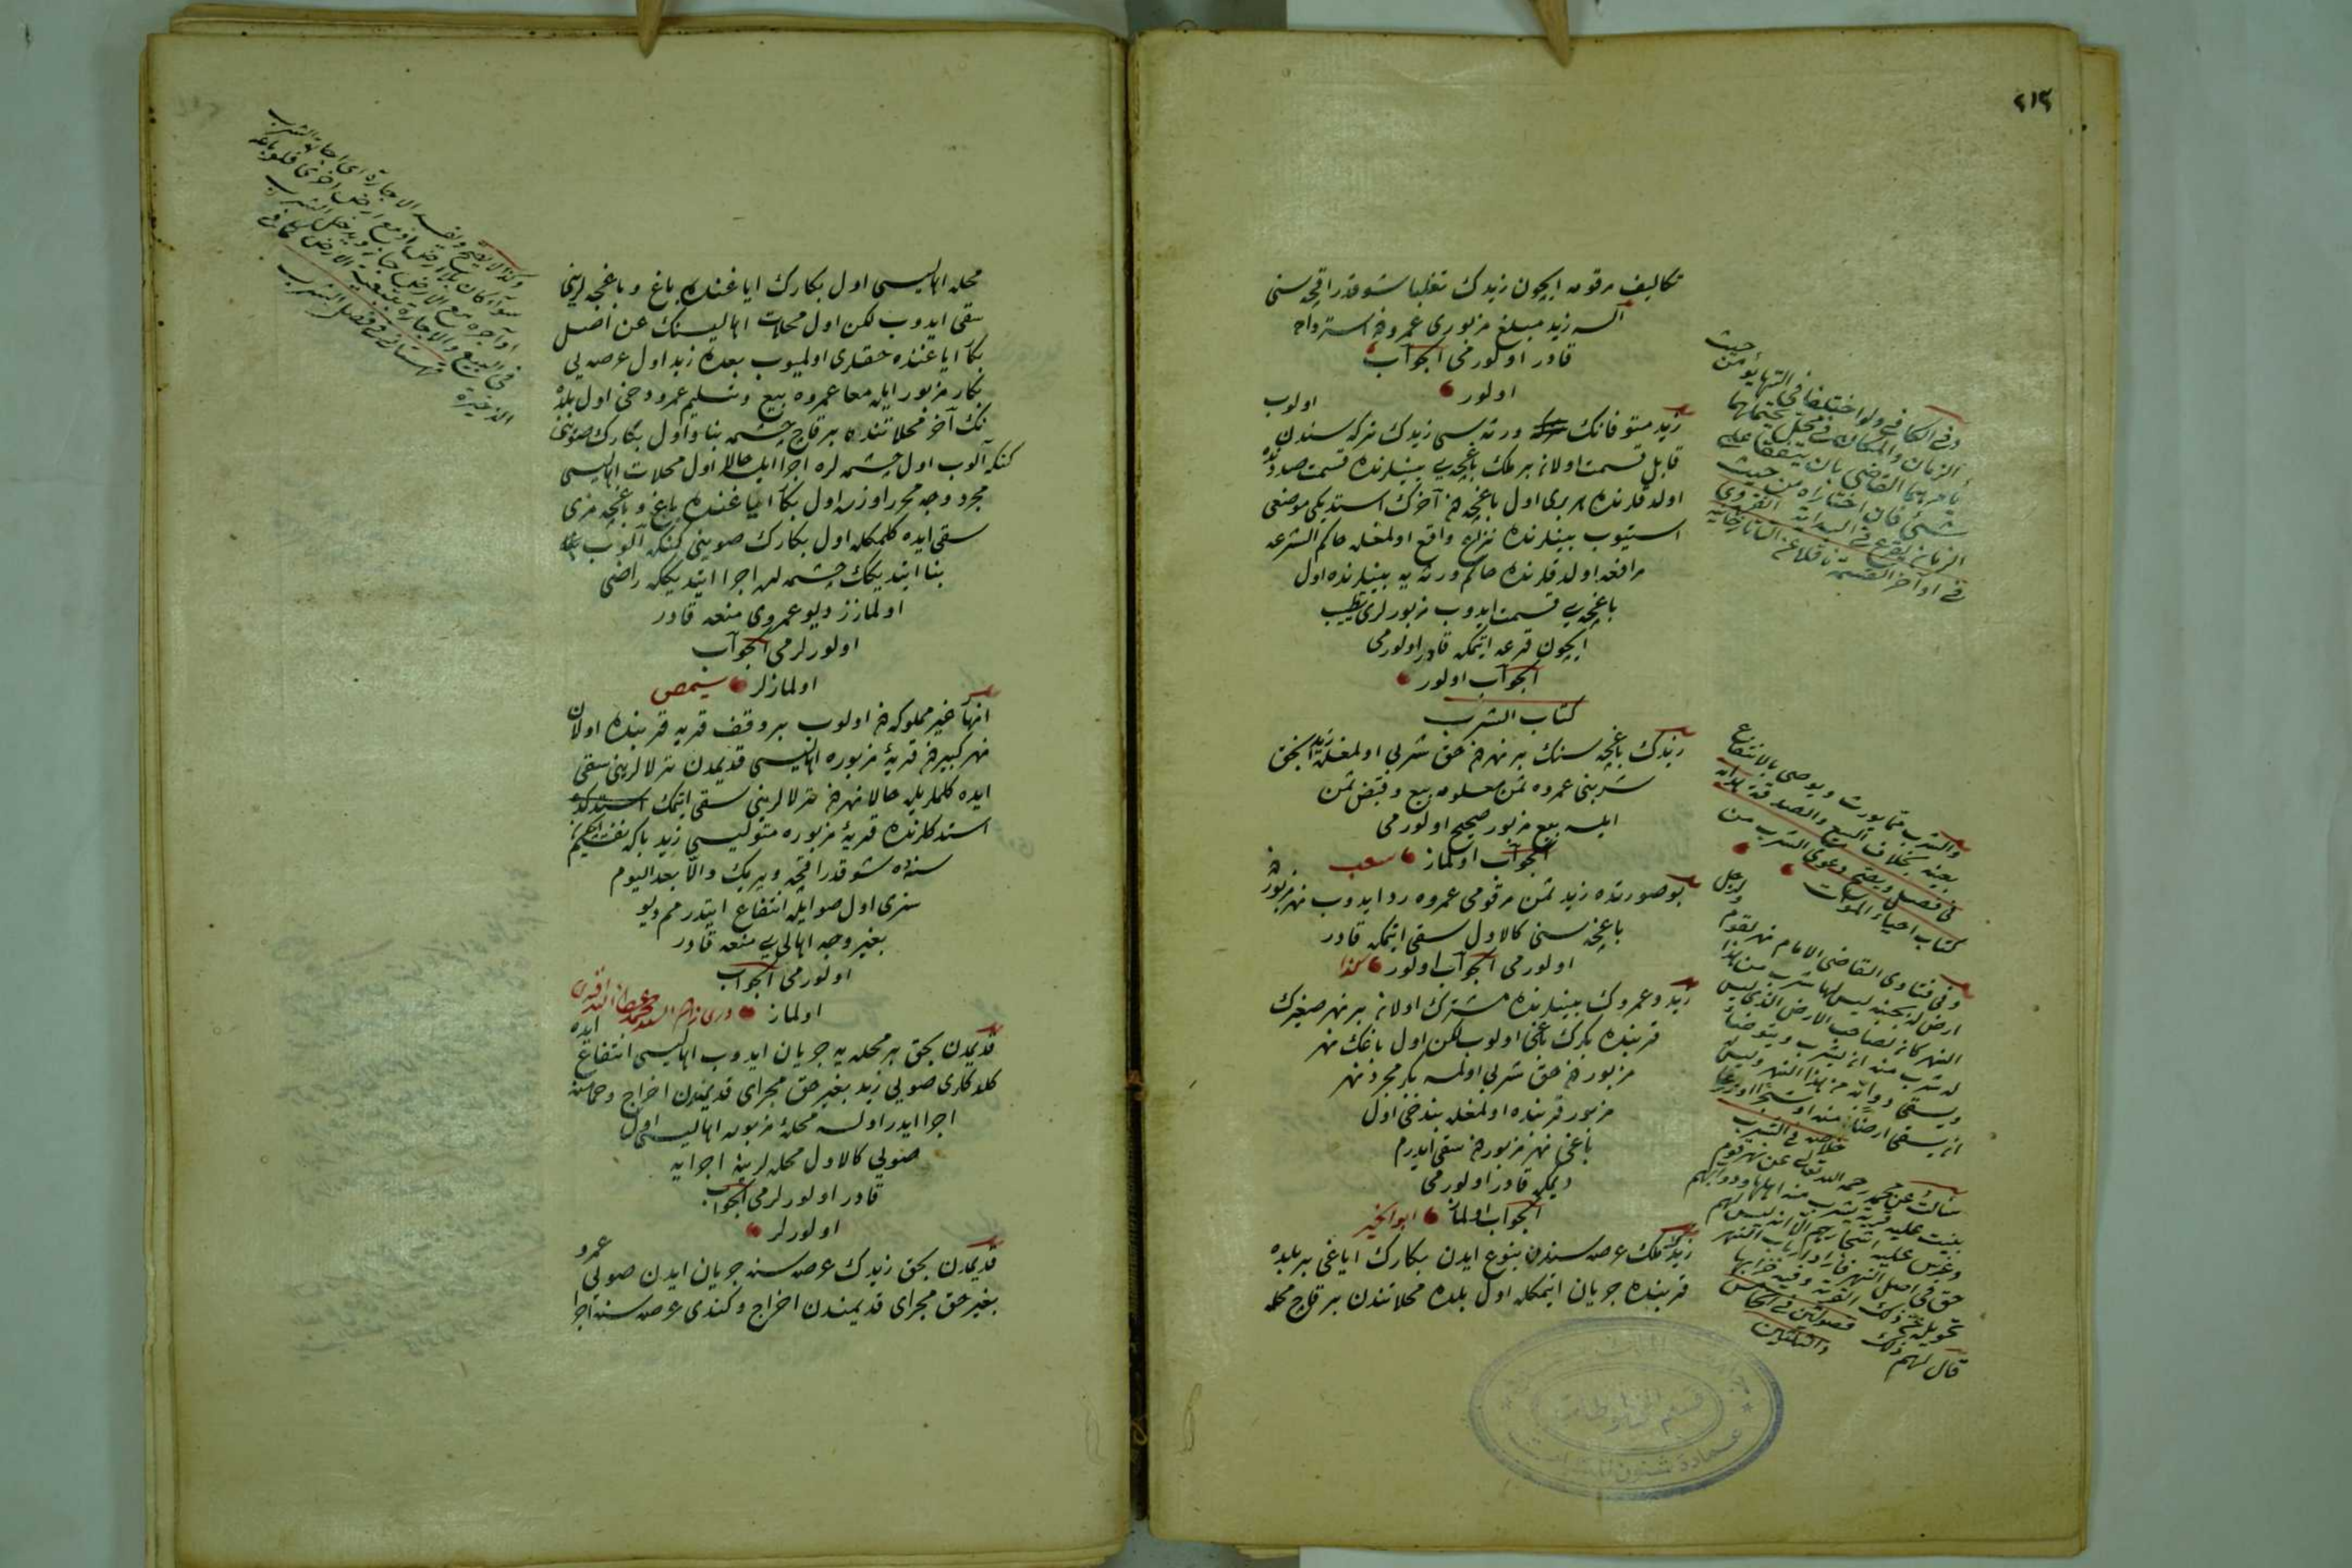 ٤١٢
تكاليف مرقومه ايچون زيدك تغلبا شو قدر اقچه سنی
السه زيد مبلغ مزبوری عمرودن استرداده
قادر اولورمی الجواب
اولور
زيد متوفانك ورثه سی زيدك تركه سندن اولوب
قابل قسمت اولان بر ملك باغچه يی بينلرنده قسمت صددنده
اولدقلرنده هر بری اول باغچه نك آخرك استديكی موضعی
استيوب بينلرنده نزاع واقع اولمغله حاكم الشرعه
مرافعه اولدقلرنده حاكم ورثه يه بينلرنده اول
باغچه يی قسمت ايدوب مزبورلری تطييب
ايچون قرعه ايتمكه قادر اولورمی
الجواب اولور
كتاب الشرب
زيدك باغچه سنك بر نهردن حق شربی اولمغله زيد انجق
شربنی عمروه ثمن معلومه بيع وقبض ثمن
ايلسه بيع مزبور صحيح اولورمی
الجواب اولماز
بو صورتده زيد ثمن مرقومی عمروه رد ايدوب نهر مزبوردن
باغچه سنی كالاول سقی ايتمكه قادر
اولورمی الجواب اولور كذا
زيد وعمروك بينلرنده مشترك اولان بر نهر صغيرك
قربنده بكرك باغی اولوب لكن اول باغك نهر
مزبوردن حق شربی اولمسه بكر مجرد نهر
مزبور قربنده اولمغله بن دخی اول
باغی نهر مزبوردن سقی ايدرم
ديمكه قادر اولورمی
الجواب اولماز ابو الخير
زيدك ملك عرصه سندن بنوع ايدن بكارك اياغی بر بلده
قربنده جريان ايتمكله اول بلده محلاتندن بر قاچ محله
وفی الكافی ولو اختلفا فی التهايؤ من حيث
الزمان والمكان فی محل يحتملهما
يأمرهما القاضی بان يتفقا علی
شیء فان اختاراه من حيث
الزمان يقرع فی البداية
فی اواخر القسمة ناقلا عن التاتارخانيه
والشرب مما يورث ويوصی بالانتفاع
بعينه بخلاف البيع والصدقة والهبة
فی فصل ويصح دعوی الشرب من
كتاب احياء الموات
وفی فتاوی القاضی الامام نهر لقوم ولرجل
ارض بجنبه ليس لها شرب من هذا
النهر كان لصاحب الارض الذی ليس
له شرب منه ان يشرب ويتوضأ
ويسقی دوابه من هذا النهر وليس له
ان يسقی ارضا منه او شجرا او زرعا
خلاصه فی الشرب
سألت عن محمد رحمه الله تعالی عن نهر قوم
بنيت عليه قرية يشرب منه اهلها ودوابهم
وغرس عليه اشجارهم الا انه ليس لهم
حق فی اصل النهر فاراد ارباب النهر
تحويله عن ذلك القرية وفيه خرابها
قال لهم ذلك
محله اهاليسی اول بكارك اياغنده باغ وباغچه لرينی
سقی ايدوب لكن اول محلات اهاليسنك عن اصل
بكا اياغنده حقلری اولميوب بعده زيد اول عرصه يی
بكار مزبور ايله معا عمروه بيع وتسليم عمرو دخی اول بلده
نك آخر محلاتنده بر قاچ چشمه بنا واول بكارك صوينی
كنكه آلوب اول چشمه لره اجرا ايلسه حالا اول محلات اهاليسی
مجرد وجه محرر اوزره اول بكا اياغنده باغ وباغچه مزی
سقی ايده كلمكله اول بكارك صوينی كنكه آلوب
بنا ايتديكك چشمه لره اجرا ايتديككه راضی
اولمازز ديو عمروی منعه قادر
اولورلرمی الجواب
اولمازلر
انهار غير مملوكه دن اولوب بر وقف قريه قربنده اولان
نهر كبيردن قريهٔ مزبوره اهاليسی قديمدن ترلالرينی سقی
ايده كلملريله حالا نهردن ترلالرينی سقی ايتمك
استدكلرنده قريهٔ مزبوره متوليسی زيد بكا
سنه ده شو قدر اقچه ويريك والا بعد اليوم
سزی اول صو ايله انتفاع ايتدرمم ديو
بغير وجه اهالی يی منعه قادر
اولورمی الجواب
اولماز
قديمدن بحق بر محله يه جريان ايدوب اهاليسی انتفاع ايده
كلدكلری صويی زيد بغير حق مجرای قديمندن اخراج وحمامنه
اجرا ايدر اولسه محلهٔ مزبوره اهاليسی اول
صويی كالاول محله لرينه اجرايه
قادر اولورلرمی الجواب
اولورلر
قديمدن بحق زيدك عرصه سنه جريان ايدن صويی عمرو
بغير حق مجرای قديمندن اخراج وكندی عرصه سنه اجرا
فی البيع والاجارة بتبعية الارض كما فی
الذخيرة قهستانی فی فصل الشرب
قسم المخطوطات
عمادة شئون المكتبات